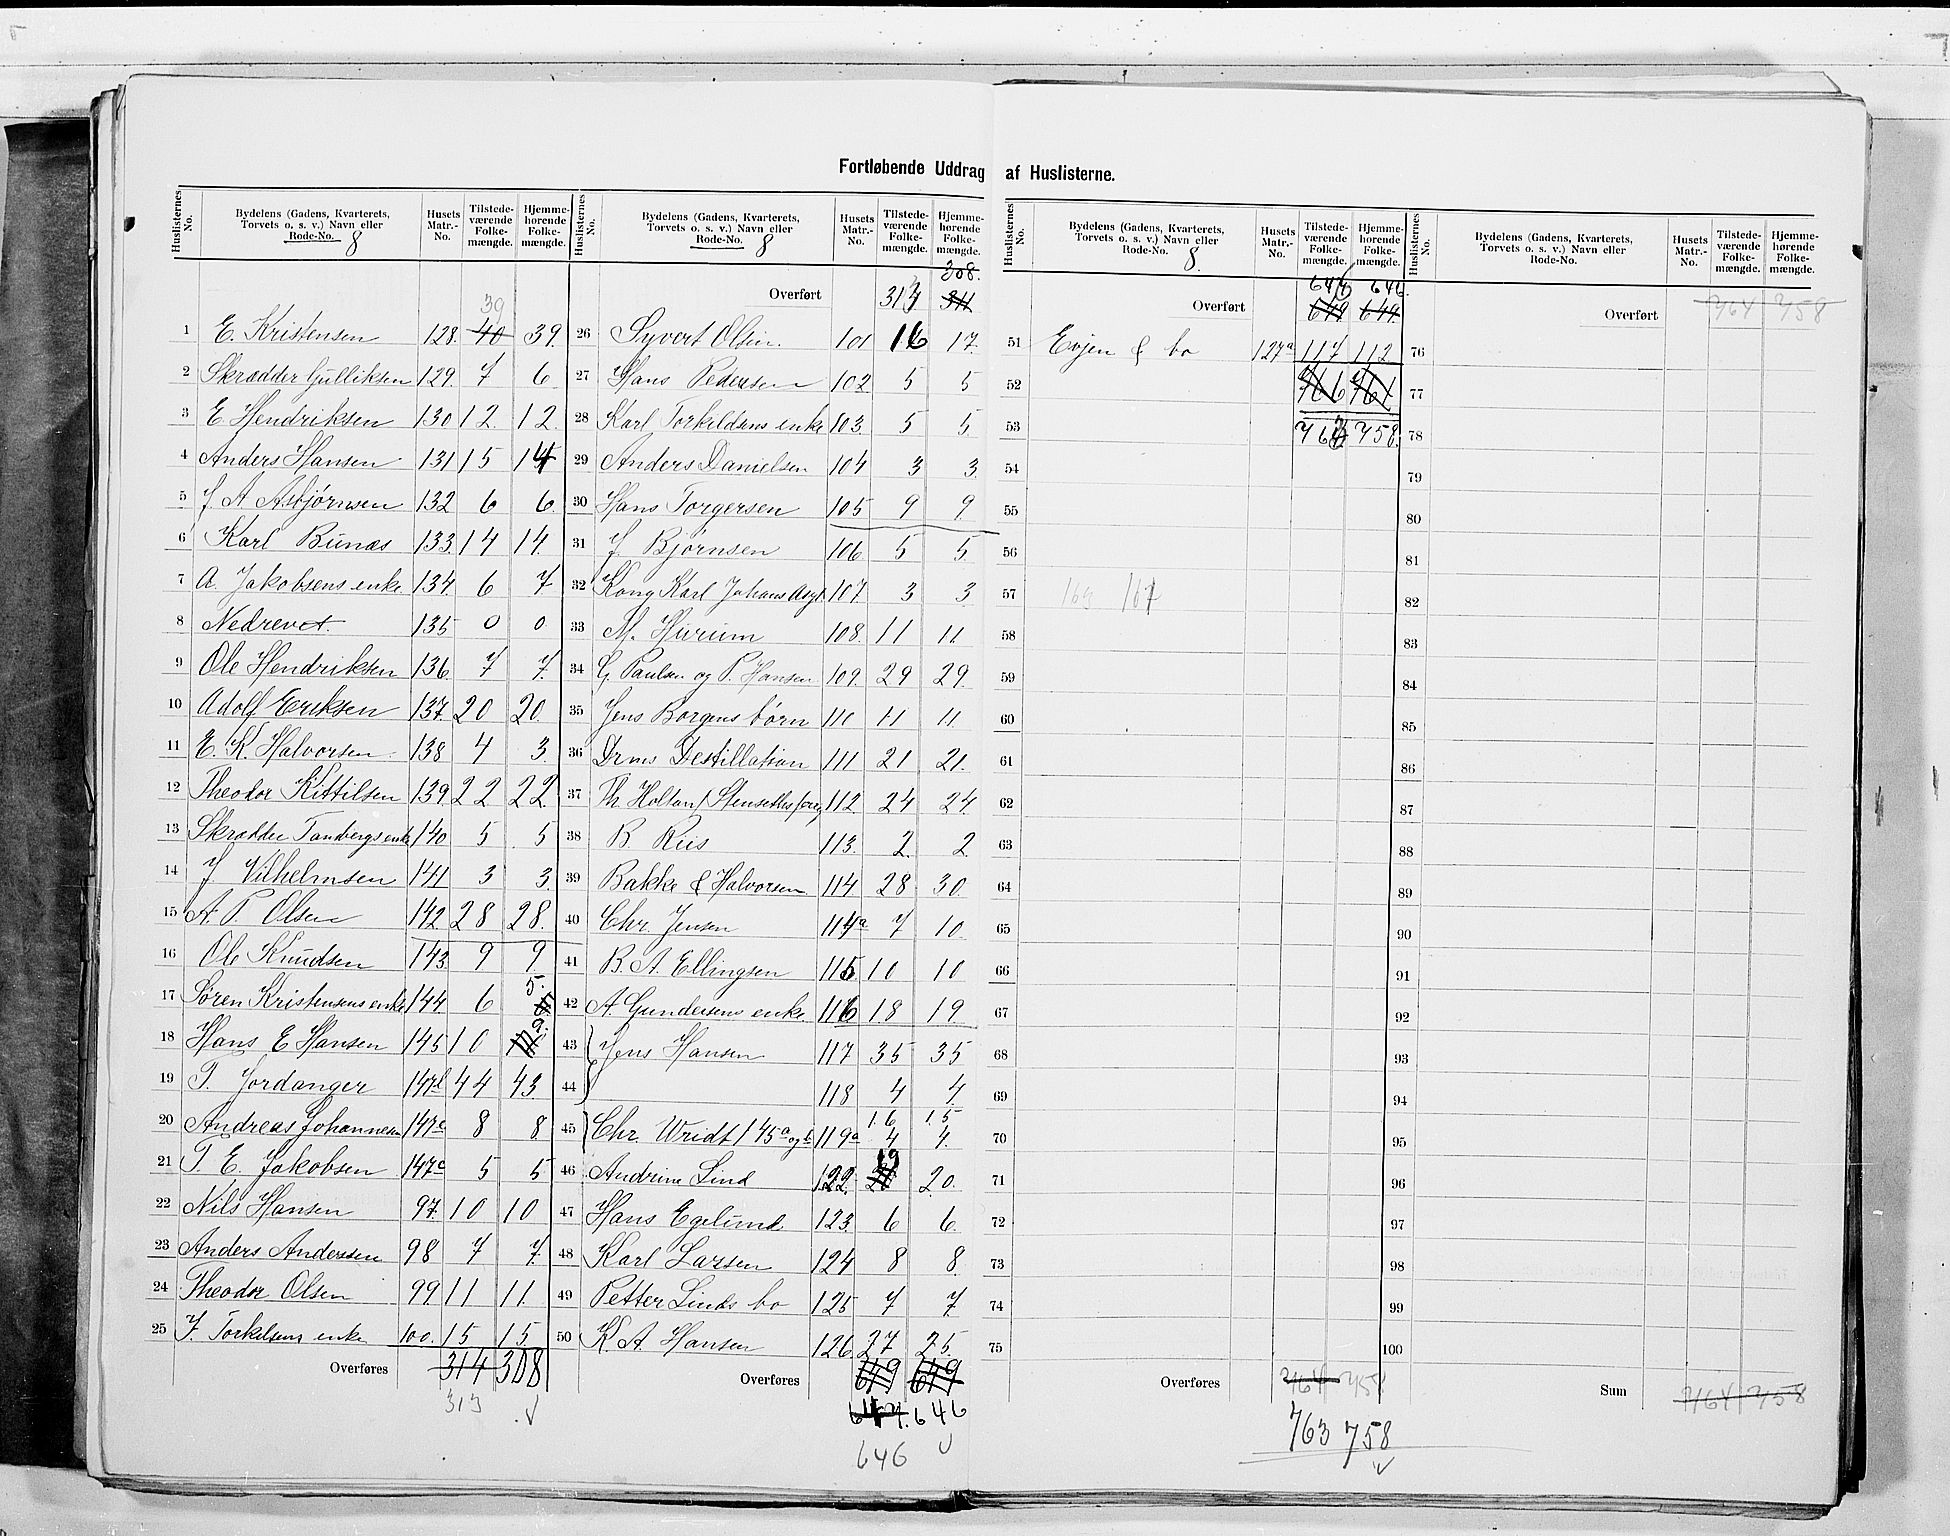 Fortløbende Uddrag af Huslisterne.
Huslisternes No. Bydelens (Gadens, Kvarterets, Torvets o. s. v.) Navn eller Rode-No. 8 Husets Matr.-No. Tilstedeværende Folkemængde. Hjemmehørende Folkemængde.
39
1 E. Kristensen 128. 40 39.
2 Skrædder Gulliksen 129. 7 6
3 E. Hendriksen 130 12. 12.
4 Anders Hansen 131 15 14
5 J. A. Asbjørnsen 132 6 6.
6 Karl Bunæs 133 14 14.
7 A. Jakobsens enke 134. 6 7
8 Nedrevet 135 0 0
9 Ole Hendriksen 136. 7 7.
10 Adolf Eriksen 137. 20 20.
11 E. K. Halvorsen 138 4 3.
12 Theodor Kittilsen 139 22 22
13 Skrædder Tandbergs enke 140 5 5
14 J. Vilhelmsen 141 3 3.
15 A. P. Olsen 142 28 28.
16 Ole Knudsen 143. 9 9.
17 Søren Kristensens enke 144. 6 5.
18 Hans E Hansen 145 10 9.
19 T. Jordanger 147b 44 43.
20 Andreas Johannesen 147c 8 8.
21 T. E. Jakobsen 147c 5 5
22 Nils Hansen 97. 10 10
23 Anders Anderssen 98 7 7.
24 Theodor Olsen 99 11 11.
25 J. Torkelsens enke 100. 15 15.
Overføres 314 308
313
Huslisternes No. Bydelens (Gadens, Kvarterets, Torvets o. s. v.) Navn eller Rode-No. 8 Husets Matr.-No. Tilstedeværende Folkemængde. Hjemmehørende Folkemængde.
308.
Overført 313 311
26 Syvert Olsen. 101 16 17.
27 Hans Pedersen 102 5 5
28 Karl Torkildsens enke 103. 5 5.
29 Anders Danielsen 104 3 3.
30 Hans Torgersen 105 9 9.
31 J. Bjørnsen 106. 5 5.
32 Kong Karl Johans Asyl 107. 3 3
33 M. Hurum 108. 11 11.
34 G. Paulsen og P. Hansen 109. 29 29.
35 Jens Borgens børn 110 11 11
36 Drms Destillation 111 21 21.
37 Th Holtan / Stenseths 112. 24 24.
38 B. Riis 113. 2. 2.
39 Bakke & Halvorsen 114. 28 30.
40 Chr. Jensen 114a 7 10.
41 B. A. Ellingsen 115. 10 10
42 A. Gundersens enke. 116 18 19.
43 Jens Hansen 117 35 35
44 118 4 4.
16 15
45 Chr. Wridt / 45a og b 119a 4 4.
46 Andrine Lind 122. 19 20.
47 Hans Egelund 123. 6 6.
48 Karl Larsen 124 8 8.
49 Petter Linds bo 125 7 7
50 K. A. Hansen 126. 27 25.
Overføres 649 649
647. 646
646
Huslisternes No. Bydelens (Gadens, Kvarterets, Torvets o. s. v.) Navn eller Rode-No. 8. Husets Matr.-No. Tilstedeværende Folkemængde. Hjemmehørende Folkemængde.
646 646.
Overført 649 649.
51 Evjen & bo 127a 117 112
52 766 761
53 763 758.
54
55
56
57 163 167
58
59
60
61
62
63
64
65
66
67
68
69
70
71
72
73
74
75
Overføres 764 758
763 758
Huslisternes No. Bydelens (Gadens, Kvarterets, Torvets o. s. v.) Navn eller Rode-No. Husets Matr.-No. Tilstedeværende Folkemængde. Hjemmehørende Folkemængde.
Overført 764 758
76
77
78
79
80
81
82
83
84
85
86
87
88
89
90
91
92
93
94
95
96
97
98
99
100
Sum 764 758